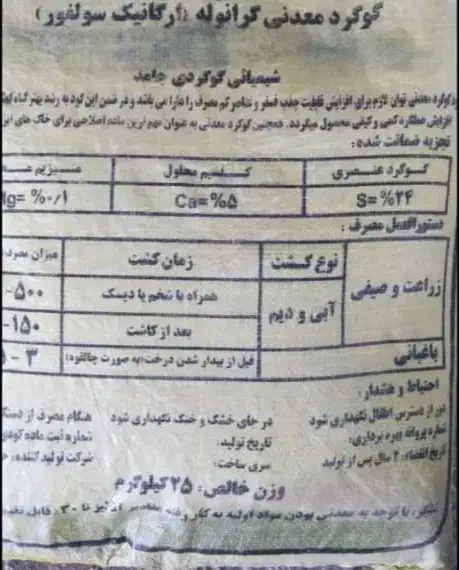 گوگرد معدنی گرانوله (ارگانیک سولفور)
شیمیائی گوگردی جامد
گوگرد معدنی توان لازم برای افزایش قابلیت جذب فسفر و عناصر کم مصرف را دارا می باشد و در ضمن این کود به رشد بهتر گیاه
افزایش عملکرد کمی و کیفی محصول میگردد. همچنین گوگرد معدنی به عنوان مهم ترین ماده اصلاحی برای خاک های
تجزیه ضمانت شده:
گوگرد عنصری کلسیم محلول منیزیم
S= %۲۴ Ca= %۵ Mg= %۰/۱
دستورالعمل مصرف:
نوع کشت زمان کشت میزان مصرف
زراعت و صیفی آبی و دیم همراه با شخم یا دیسک ۵۰۰-
بعد از کاشت ۱۵۰-
باغبانی قبل از بیدار شدن درخت (به صورت چالکود) ۳ -
احتیاط و هشدار:
دور از دسترس اطفال نگهداری شود در جای خشک و خنک نگهداری شود هنگام مصرف از
شماره پروانه بهره برداری: تاریخ تولید: شماره ثبت ماده کودی
تاریخ انقضاء: ۲ سال پس از تولید سری ساخت: شرکت تولید کننده:
وزن خالص: ۲۵ کیلوگرم
با توجه به معدنی بودن مواد اولیه به کار رفته مقادیر آنالیز تا ۳۰٪ قابل